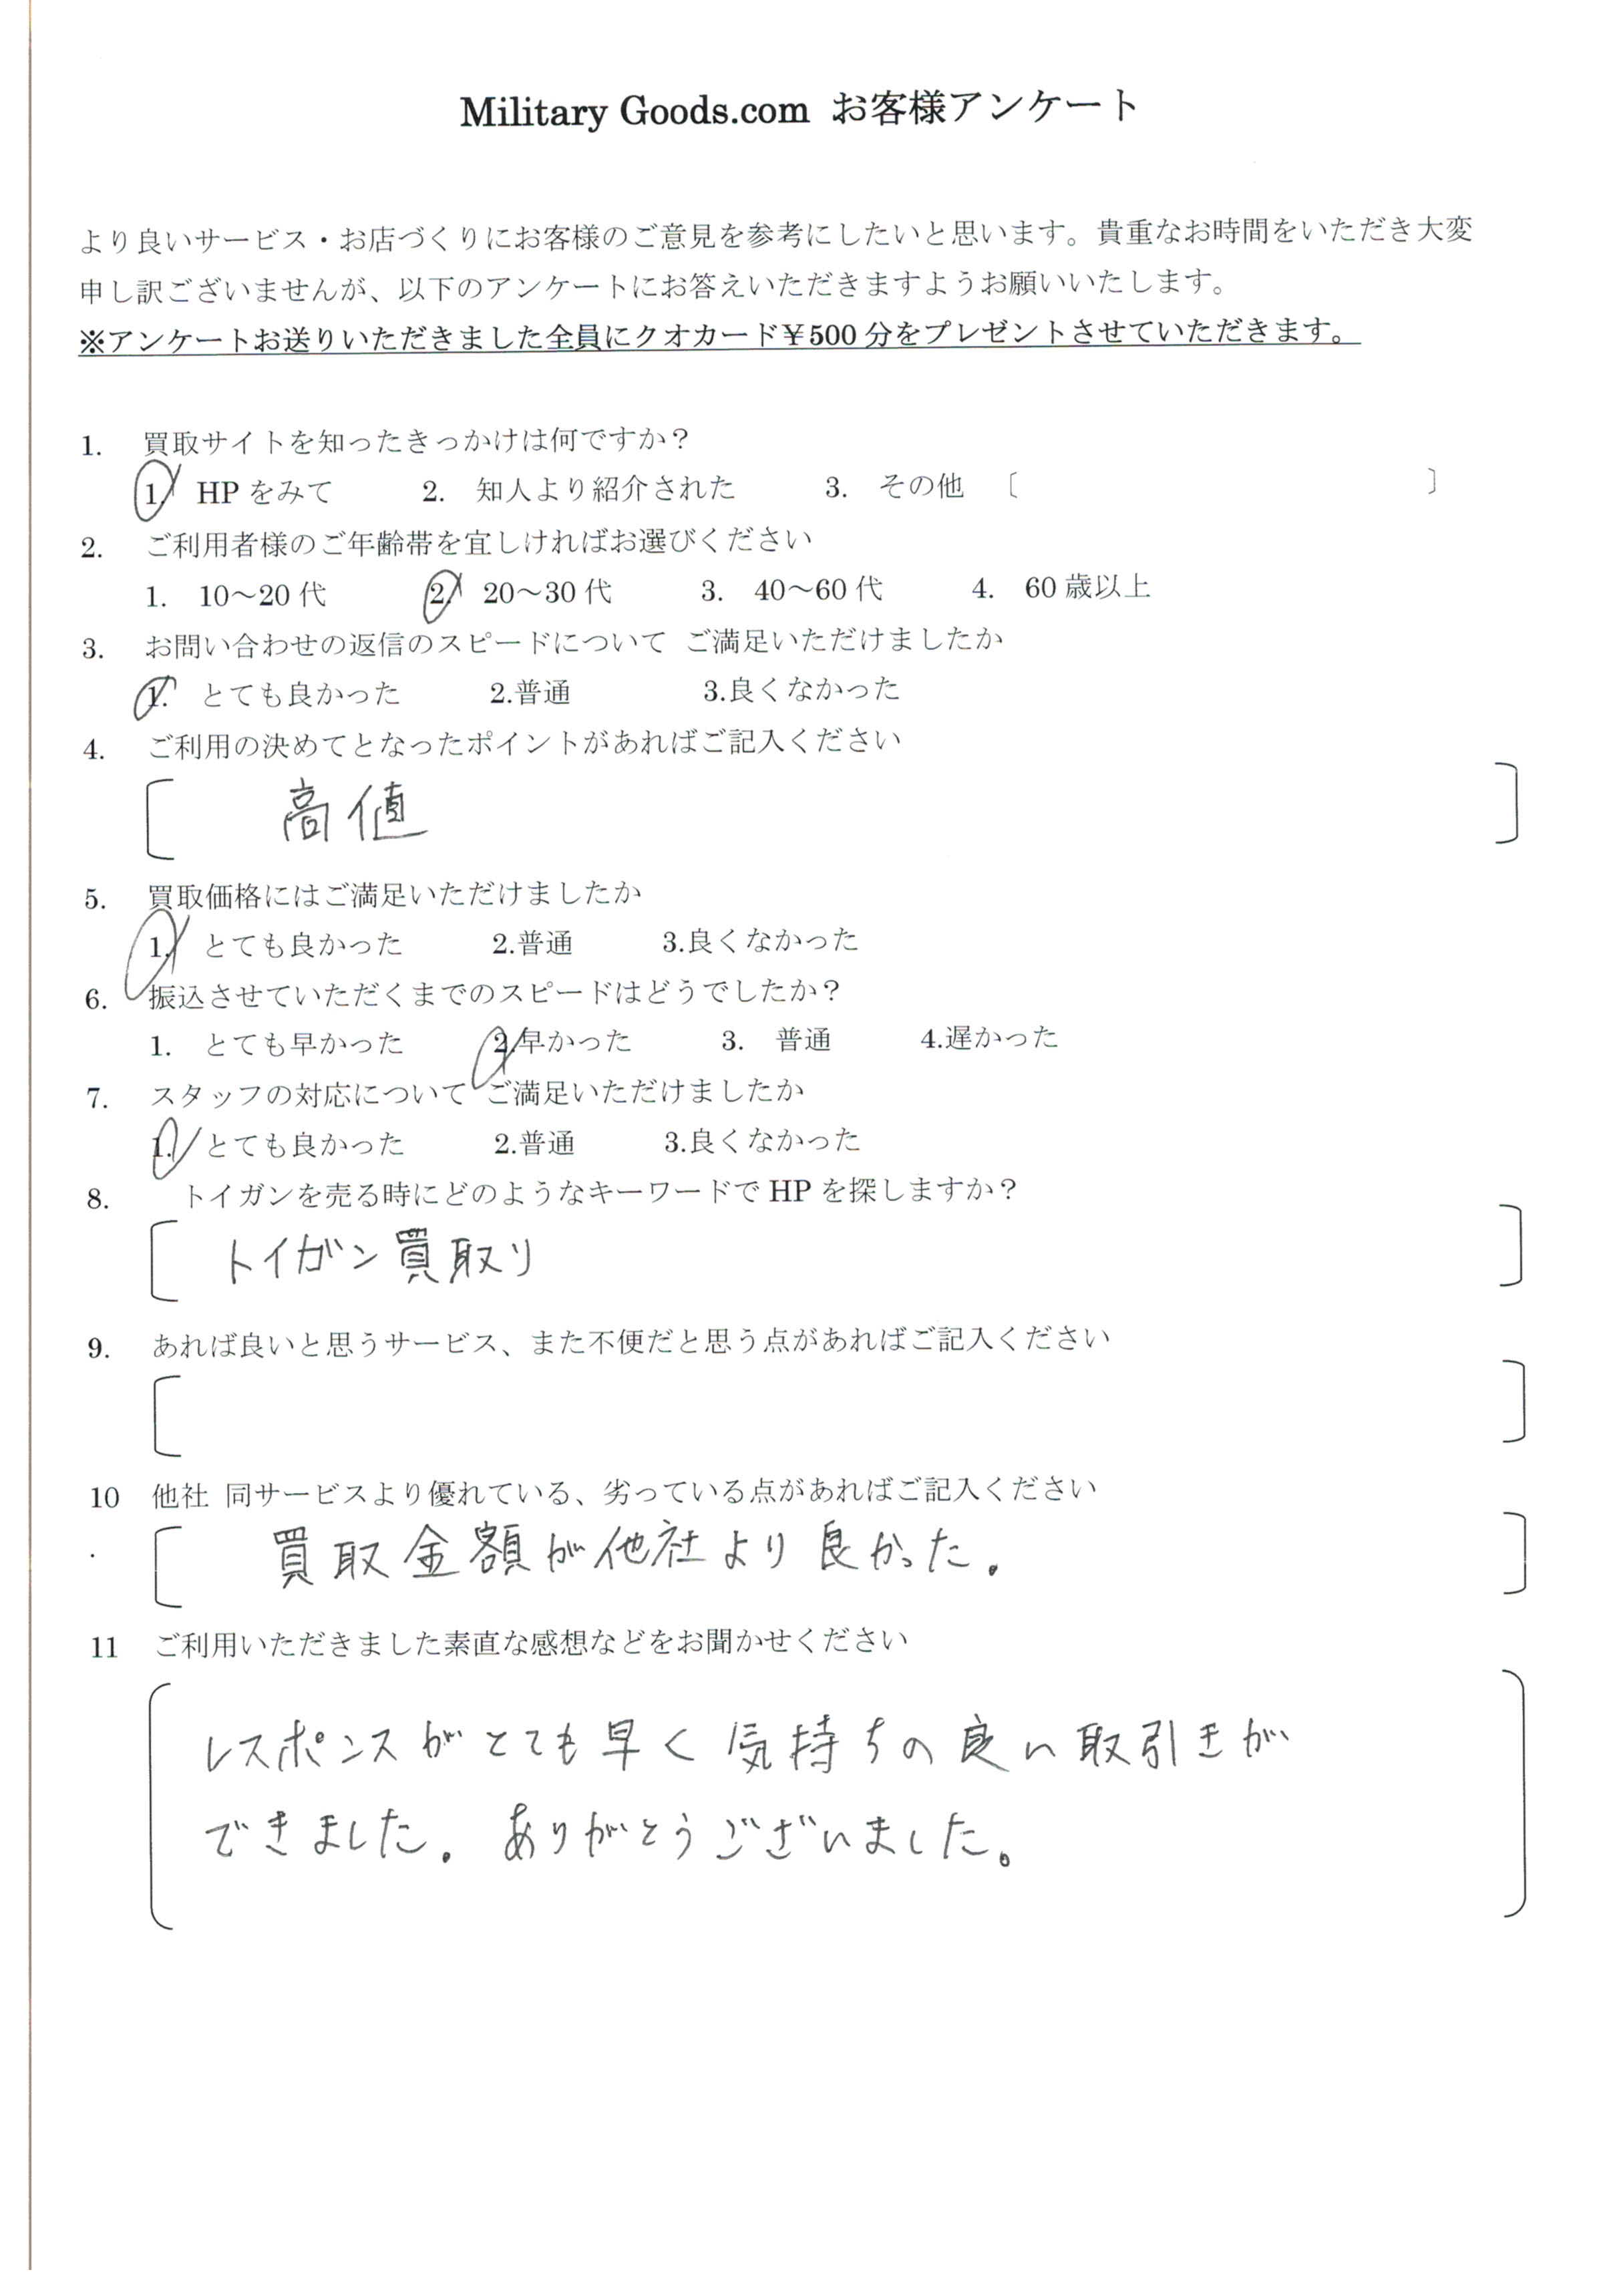 Military Goods.com お客様アンケート
より良いサービス・お店づくりにお客様のご意見を参考にしたいと思います。貴重なお時間をいただき大変
申し訳ございませんが、以下のアンケートにお答えいただきますようお願いいたします。
※アンケートお送りいただきました全員にクオカード¥500 分をプレゼントさせていただきます。
1. 買取サイトを知ったきっかけは何ですか？
1. HP をみて 2. 知人より紹介された 3. その他 〔 〕
2. ご利用者様のご年齢帯を宜しければお選びください
1. 10～20 代 2. 20～30 代 3. 40～60 代 4. 60 歳以上
3. お問い合わせの返信のスピードについて ご満足いただけましたか
1. とても良かった 2.普通 3.良くなかった
4. ご利用の決めてとなったポイントがあればご記入ください
高値
5. 買取価格にはご満足いただけましたか
1. とても良かった 2.普通 3.良くなかった
6. 振込させていただくまでのスピードはどうでしたか？
1. とても早かった 2.早かった 3. 普通 4.遅かった
7. スタッフの対応について ご満足いただけましたか
1. とても良かった 2.普通 3.良くなかった
8. トイガンを売る時にどのようなキーワードで HP を探しますか？
トイガン買取り
9. あれば良いと思うサービス、また不便だと思う点があればご記入ください
10 他社 同サービスより優れている、劣っている点があればご記入ください
. 買取金額が他社より良かった。
11 ご利用いただきました素直な感想などをお聞かせください
レスポンスがとても早く気持ちの良い取引きが
できました。ありがとうございました。